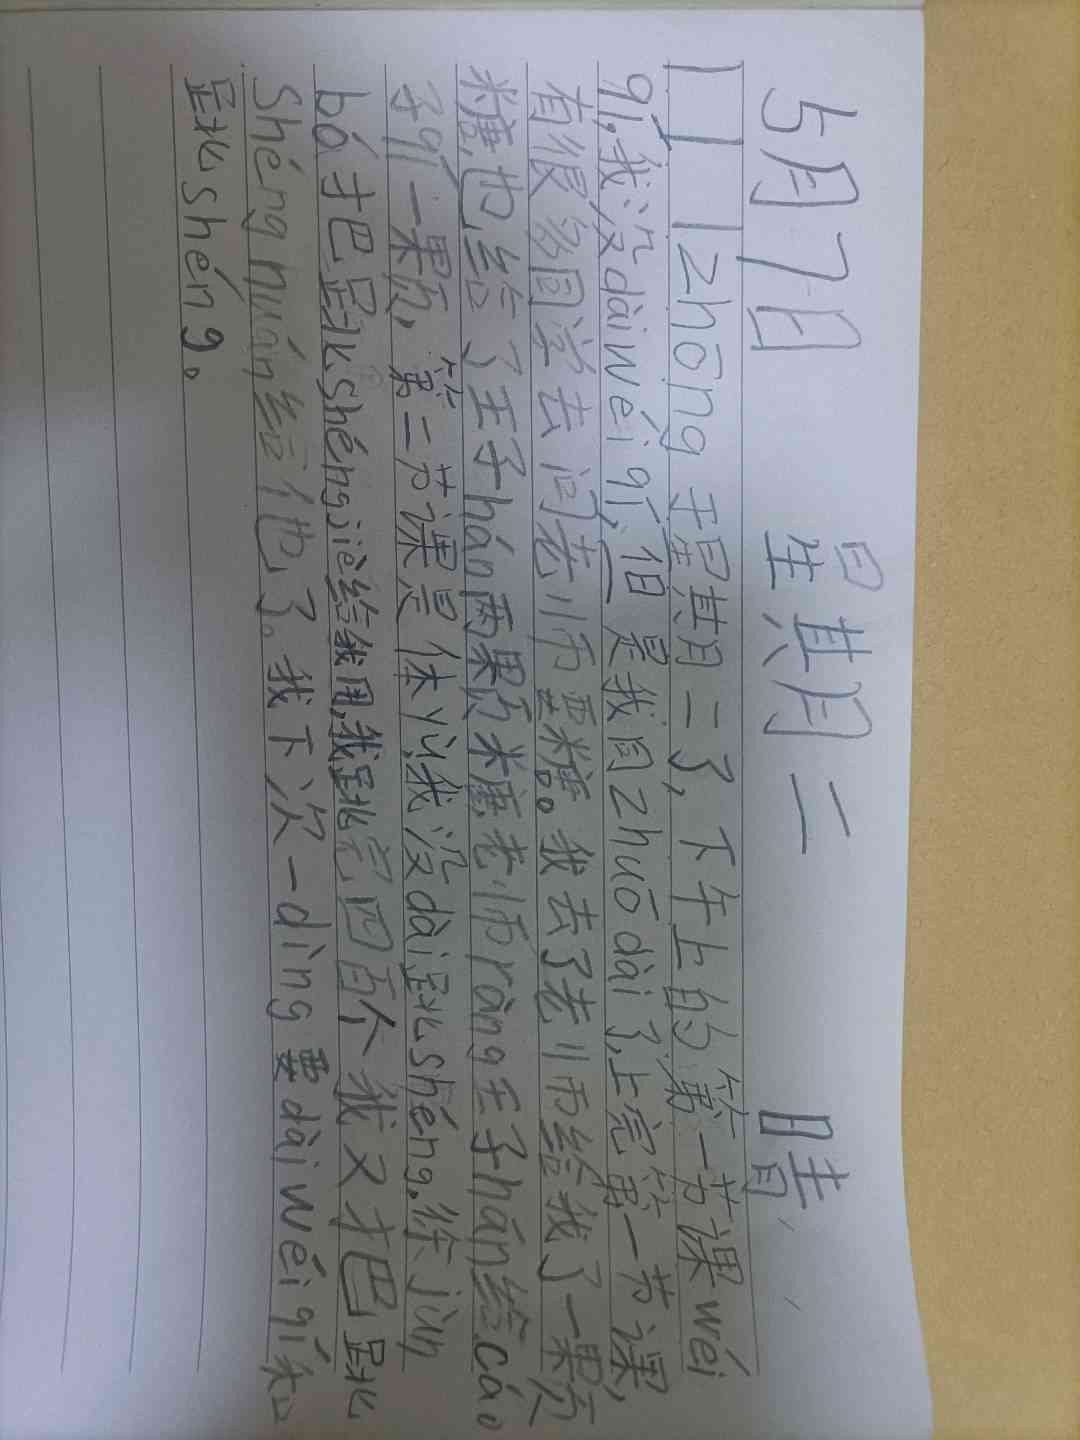 5月7日 星期二 晴
zhōng于星期二了，下午上的第一节课wéi
qí，我没dàiwéiqí，但是我同zhuōdài了，上完第一节课，
有很多同学去问老师要糖。我去了老师给我了一颗
糖，也给了王子hán两颗糖老师ràng王子hán给cáo
子qí一颗，第二节课是体以我没dài跳shéng.徐jùn
bó才把跳shéngjiè给我用，我跳完四百个我又把跳
shénghuán给他了。我下次一dìng要dàiwéiqí和
跳shéng。